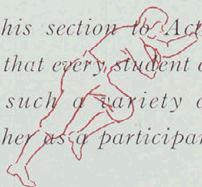 his section to Act
that every student
such a variety o
her as a participan